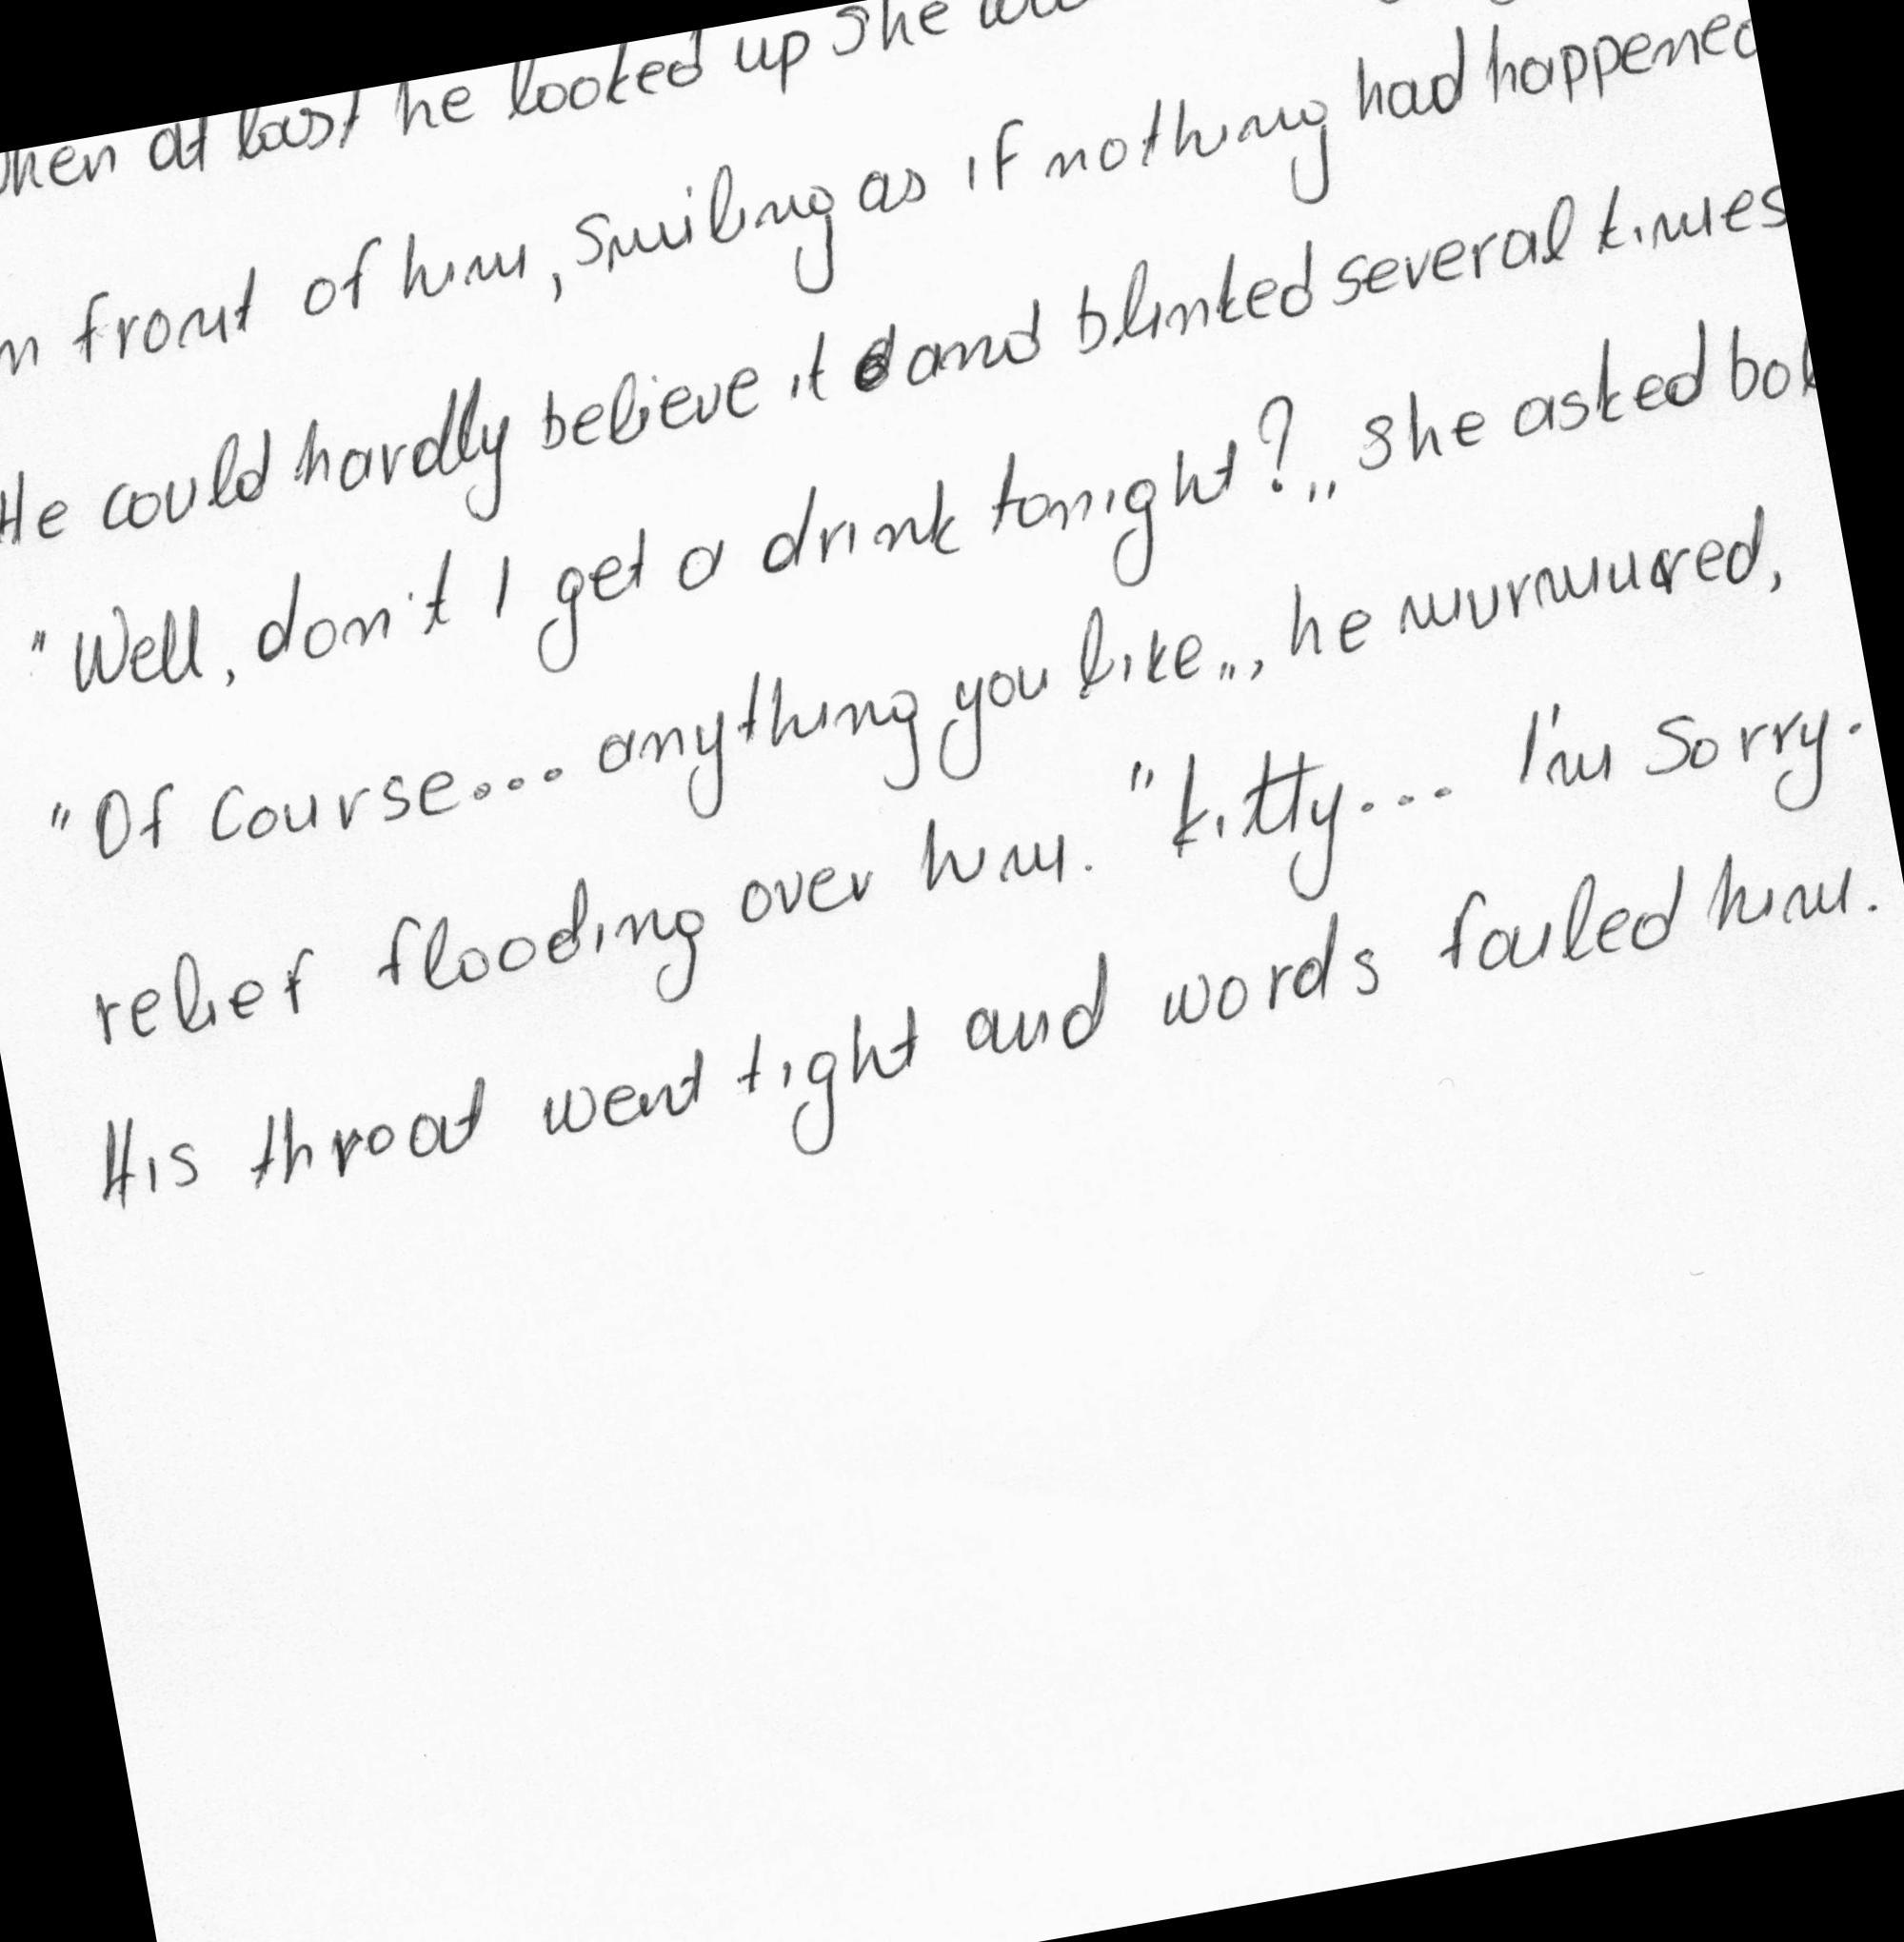 when at last he looked up she
in front of him, smiling as if nothing had happened
He could hardly believe it and blinked several times
"Well, don't I get a drink tonight?„ she asked
"Of course... anything you like„, he murmured,
relief flooding over him. "Kitty... I'm sorry.
His throat went tight and words failed him.